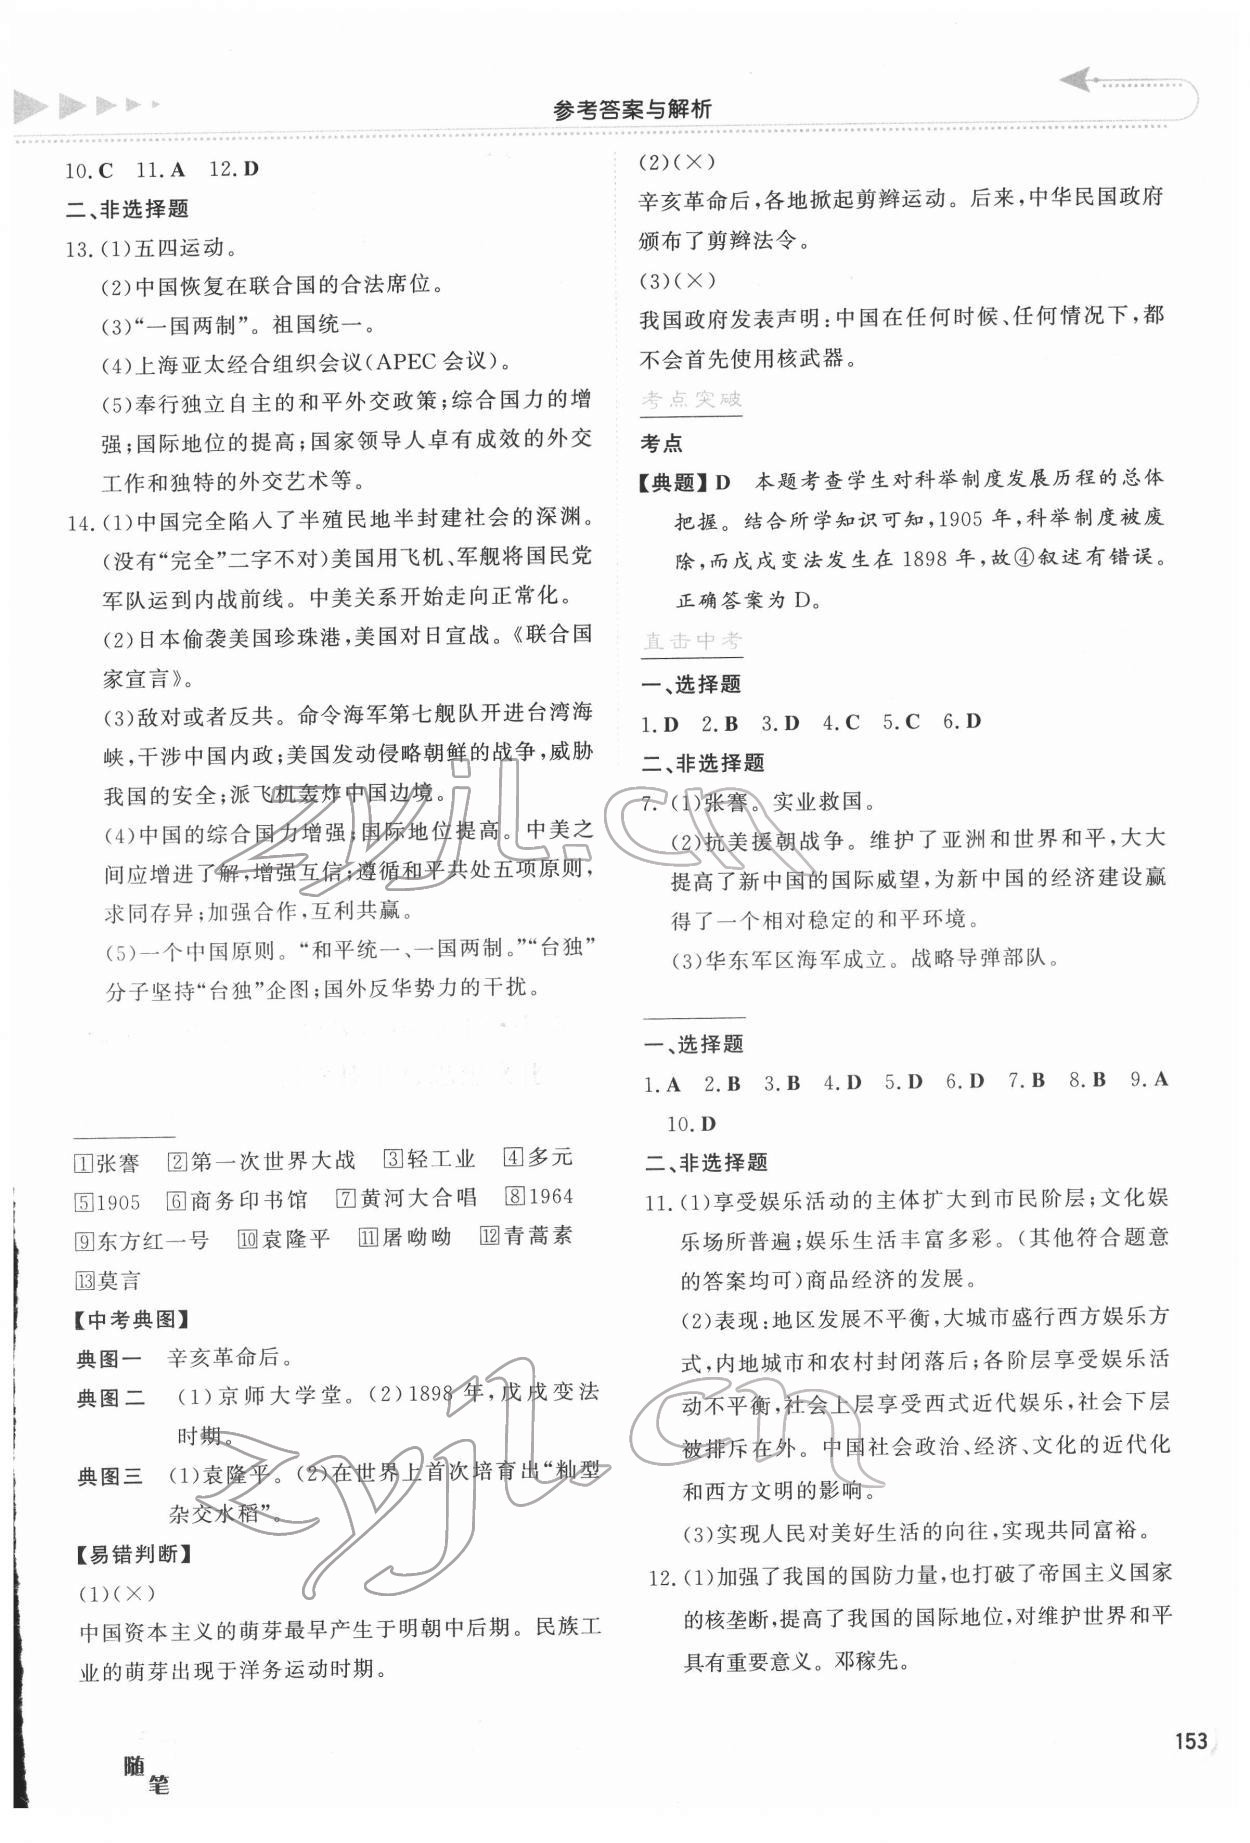 参考答案与解析
10.C 11.A 12.D
二、非选择题
13.(1)五四运动。
(2)中国恢复在联合国的合法席位。
(3)“一国两制”。祖国统一。
(4)上海亚太经合组织会议(APEC 会议)。
(5)奉行独立自主的和平外交政策;综合国力的增
强;国际地位的提高;国家领导人卓有成效的外交
工作和独特的外交艺术等。
14.(1)中国完全陷入了半殖民地半封建社会的深渊。
(没有“完全”二字不对)美国用飞机、军舰将国民党
军队运到内战前线。中美关系开始走向正常化。
(2)日本偷袭美国珍珠港,美国对日宣战。《联合国
家宣言》。
(3)敌对或者反共。命令海军第七舰队开进台湾海
峡,干涉中国内政;美国发动侵略朝鲜的战争,威胁
我国的安全;派飞机轰炸中国边境。
(4)中国的综合国力增强;国际地位提高。中美之
间应增进了解,增强互信;遵循和平共处五项原则,
求同存异;加强合作,互利共赢。
(5)一个中国原则。“和平统一、一国两制。”“台独”
分子坚持“台独”企图;国外反华势力的干扰。
1张謇 2第一次世界大战 3轻工业 4多元
5 1905 6商务印书馆 7黄河大合唱 8 1964
9东方红一号 10袁隆平 11屠呦呦 12青蒿素
13莫言
【中考典图】
典图一 辛亥革命后。
典图二 (1)京师大学堂。(2)1898 年,戊戌变法
时期。
典图三 (1)袁隆平。(2)在世界上首次培育出“籼型
杂交水稻”。
【易错判断】
(1)(×)
中国资本主义的萌芽最早产生于明朝中后期。民族工
业的萌芽出现于洋务运动时期。
(2)(×)
辛亥革命后,各地掀起剪辫运动。后来,中华民国政府
颁布了剪辫法令。
(3)(×)
我国政府发表声明:中国在任何时候、任何情况下,都
不会首先使用核武器。
考点突破
考点
【典题】D 本题考查学生对科举制度发展历程的总体
把握。结合所学知识可知,1905 年,科举制度被废
除,而戊戌变法发生在 1898 年,故④叙述有错误。
正确答案为 D。
直击中考
一、选择题
1.D 2.B 3.D 4.C 5.C 6.D
二、非选择题
7.(1)张謇。实业救国。
(2)抗美援朝战争。维护了亚洲和世界和平,大大
提高了新中国的国际威望,为新中国的经济建设赢
得了一个相对稳定的和平环境。
(3)华东军区海军成立。战略导弹部队。
一、选择题
1.A 2.B 3.B 4.D 5.D 6.D 7.B 8.B 9.A
10.D
二、非选择题
11.(1)享受娱乐活动的主体扩大到市民阶层;文化娱
乐场所普遍;娱乐生活丰富多彩。(其他符合题意
的答案均可)商品经济的发展。
(2)表现:地区发展不平衡,大城市盛行西方娱乐方
式,内地城市和农村封闭落后;各阶层享受娱乐活
动不平衡,社会上层享受西式近代娱乐,社会下层
被排斥在外。中国社会政治、经济、文化的近代化
和西方文明的影响。
(3)实现人民对美好生活的向往,实现共同富裕。
12.(1)加强了我国的国防力量,也打破了帝国主义国家
的核垄断,提高了我国的国际地位,对维护世界和平
具有重要意义。邓稼先。
zyjl.cn
zyjl.cn
153
随笔